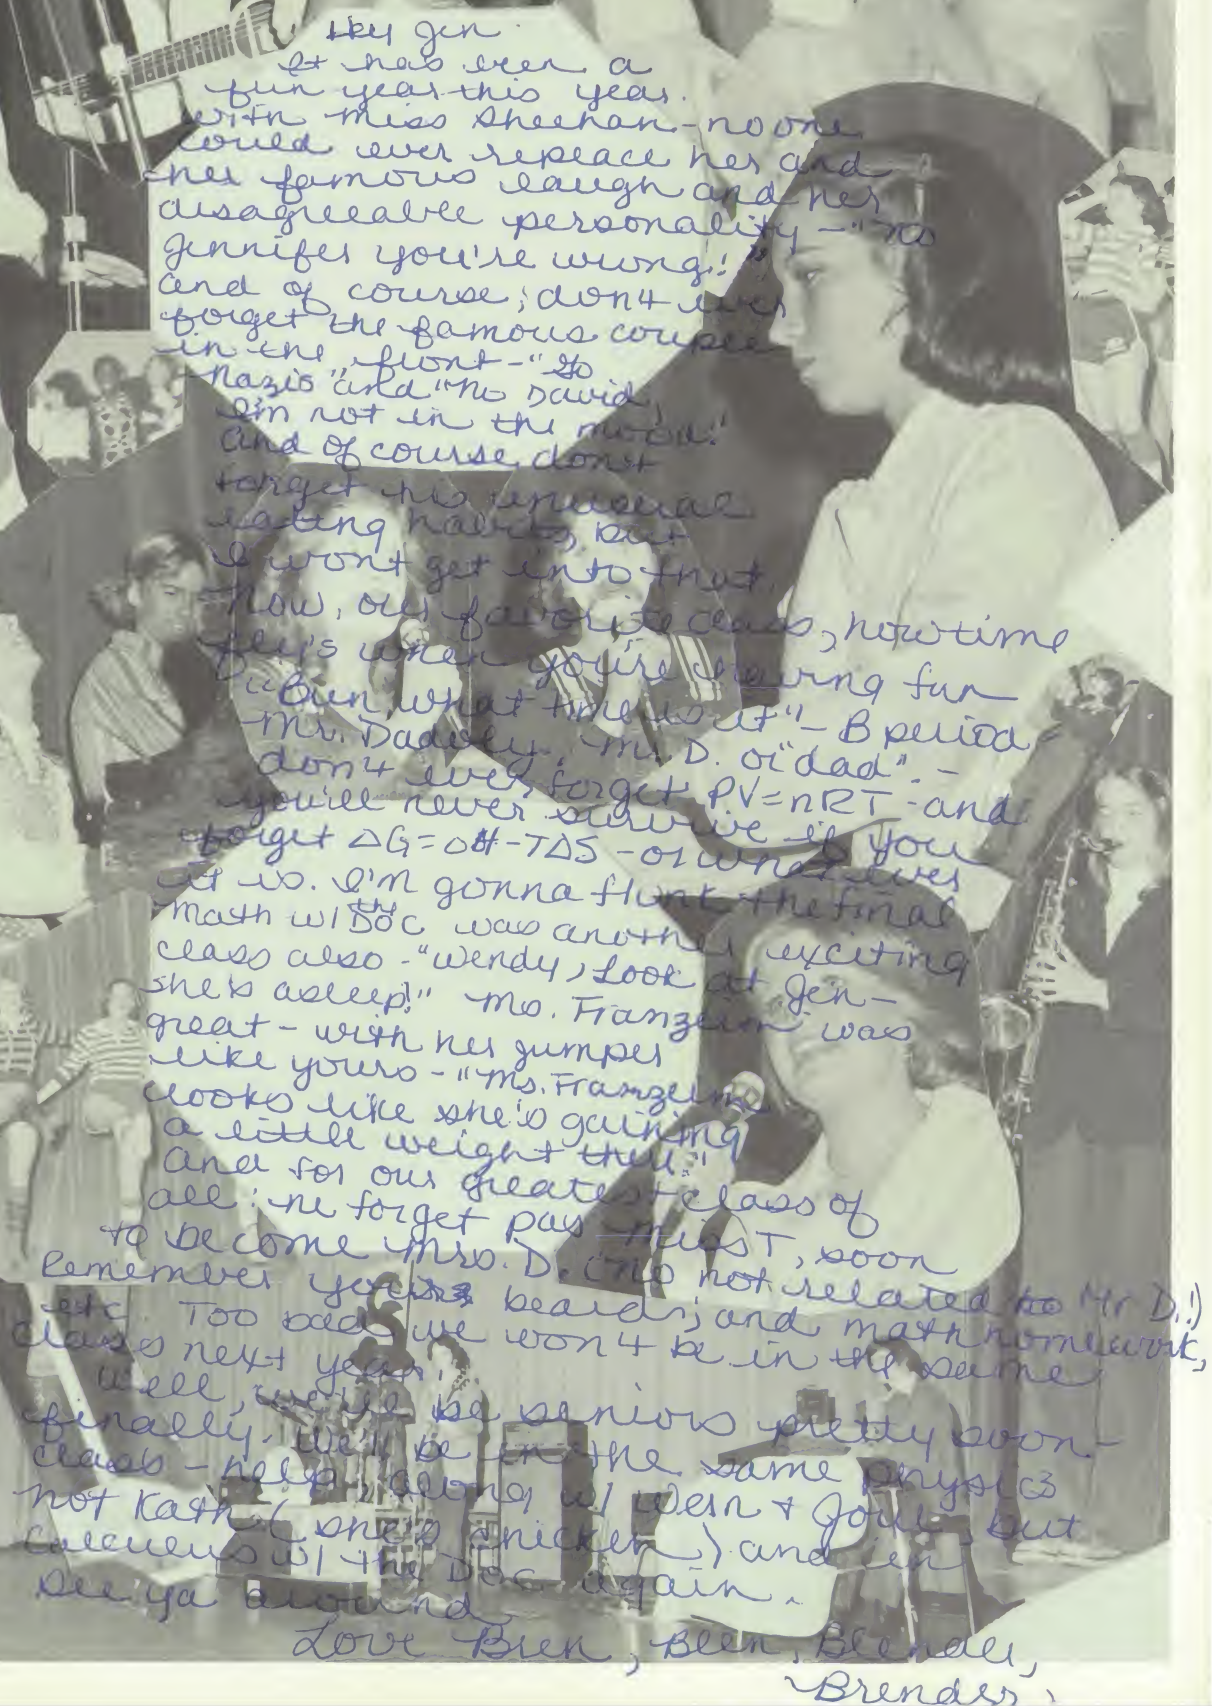 Hey Jen
It has been a
fun year this year.
with Miss Sheehan - no one
could ever replace her and
her famous laugh and her
disagreeable personality - "No
Jennifer you're wrong!"
and of course, don't ever
forget the famous couple
in the front - "Go
Nazis" and "No David,
I'm not in the mood."
and of course, don't
forget his unusual
eating habits, but
I won't get into that.
Now, our favorite class, how time
fly's when you're having fun
what time is it" - B period
Mr. Dadoly, Mr. D. or "dad". -
don't ever forget PV=nRT - and
you'll never survive if you
forget ΔG=ΔH-TΔS - or whatever
it is. I'm gonna flunk the final
Math w/ the DOC was another exciting
class also - "Wendy, look at Jen -
she's asleep!" Ms. Franzeim was
great - with her jumper
like yours - "Ms. Franzeim
looks like she's gaining
a little weight there"
and for our greatest class of
all: ne forget pas Miss T, soon
to become Mrs. D. (no not related to Mr D.!)
Remember your beard, and math homework,
etc. Too bad we won't be in the same
class next year.
Well, we'll be seniors pretty soon -
finally. We'll be in the same physics
class - help, along w/ Wern + Jour, but
not Kath (she's chicken) and in
Calculus w/ the Doc again.
See ya around
Love Bren, Blen, Blender,
Brender.